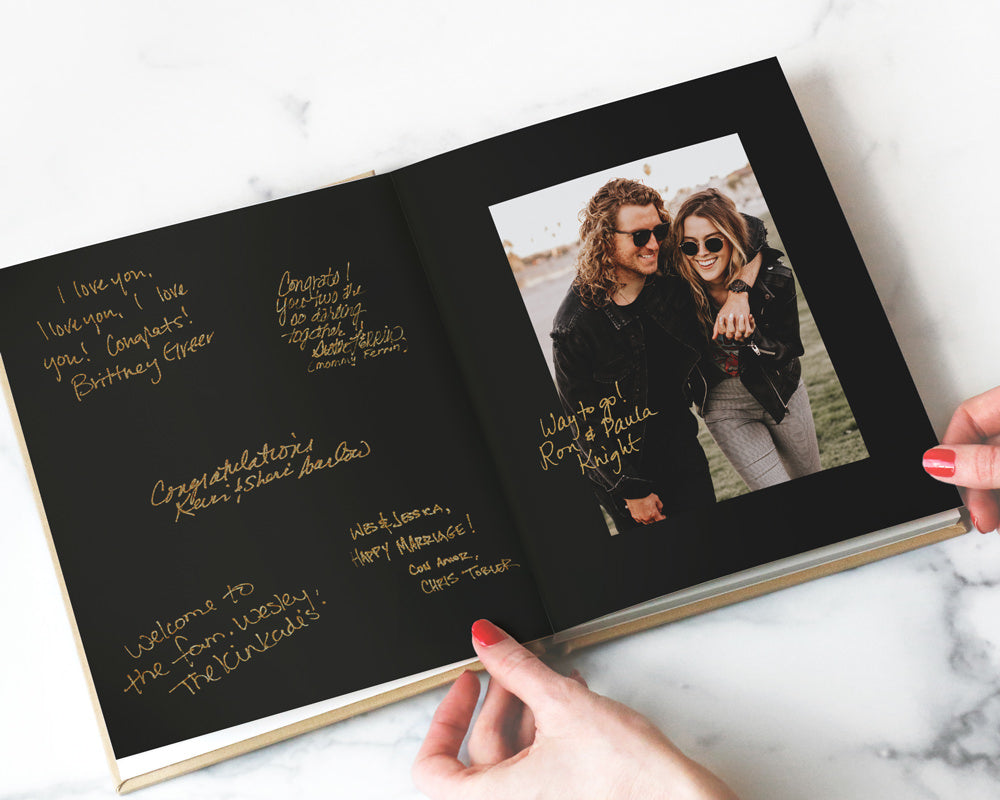 I love you,
I love you, I love
you! Congrats!
Brittney Greer
Congrats!
You two are
so darling
together!
Ferrin
(mommy Ferrin)
Congratulations
Kevin & Sheri Barlow
Wes & Jessica,
Happy Marriage!
Con amor,
Chris Tobler
Welcome to
the fam, Wesley!
The Kinkade's!
Way to go!
Ron & Paula
Knight